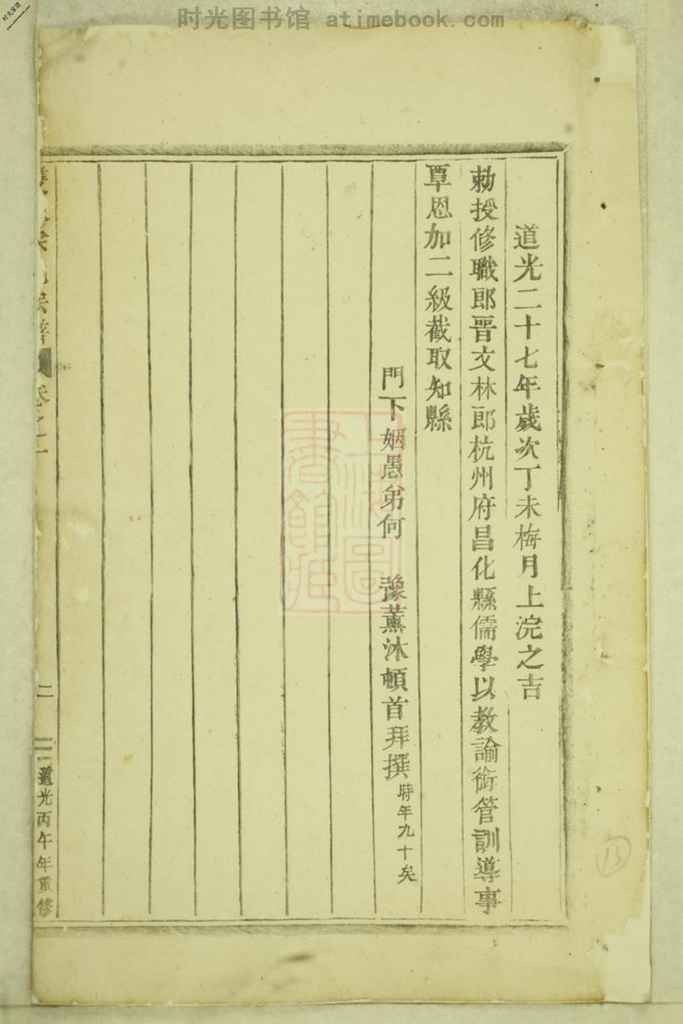 时光图书馆 atimebook.com
道光二十七年歲次丁未梅月上浣之吉
勅授修職郎晋文林郎杭州府昌化縣儒學以教諭銜管訓導事
覃恩加二級截取知縣
門下姻愚弟何　豫薰沐頓首拜撰時年九十矣
卷之二
二
道光丙午年重修